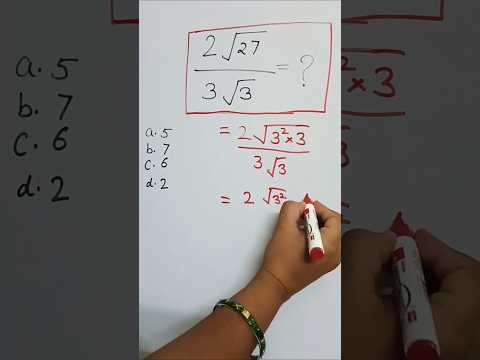 2√27 / 3√3 = ?
a. 5
b. 7
c. 6
d. 2
= 2√3²×3 / 3√3
= 2√3²
a. 5
b. 7
c. 6
3²×3
3
d. 2